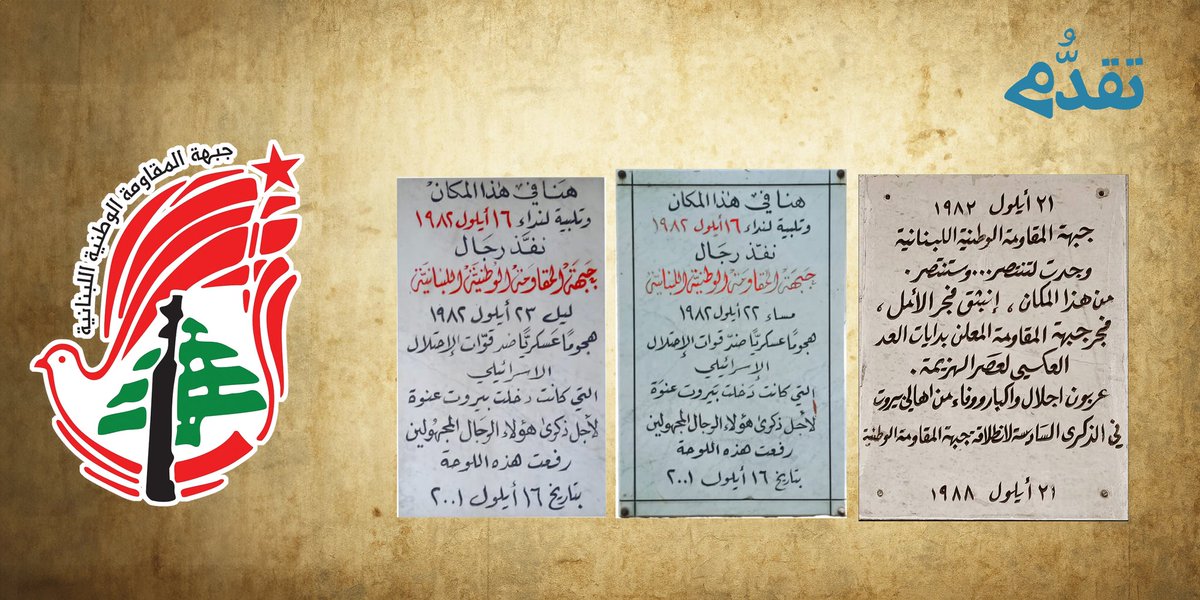 تقدُّم
٢١ أيلول ١٩٨٢
جبهة المقاومة الوطنية اللبنانية
وجدت لتنتصر...وستنتصر .
من هذا المكان ، إنبثق فجر الأمل ،
فجر جبهة المقاومة المعلن بدايات العد
العكسي لعصر الهزيمة .
عربون اجلال واكبار ووفاء من اهالي بيروت
في الذكرى السادسة لانطلاقة جبهة المقاومة الوطنية
٢١ أيلول ١٩٨٨
هنا في هذا المكان
وتلبية لنداء ١٦ أيلول ١٩٨٢
نفّذ رجال
جبهة المقاومة الوطنية اللبنانية
مساء ٢٢ أيلول ١٩٨٢
هجومًا عسكريًا ضد قوات الإحتلال
الاسرائيلي
التي كانت دخلت بيروت عنوة
لأجل ذكرى هؤلاء الرجال المجهولين
رفعت هذه اللوحة
بتاريخ ١٦ أيلول ٢٠٠١
هنا في هذا المكان
وتلبية لنداء ١٦ أيلول ١٩٨٢
نفّذ رجال
جبهة المقاومة الوطنية اللبنانية
ليل ٢٣ أيلول ١٩٨٢
هجومًا عسكريًا ضد قوات الإحتلال
الاسرائيلي
التي كانت دخلت بيروت عنوة
لأجل ذكرى هؤلاء الرجال المجهولين
رفعت هذه اللوحة
بتاريخ ١٦ أيلول ٢٠٠١
جبهة المقاومة الوطنية اللبنانية